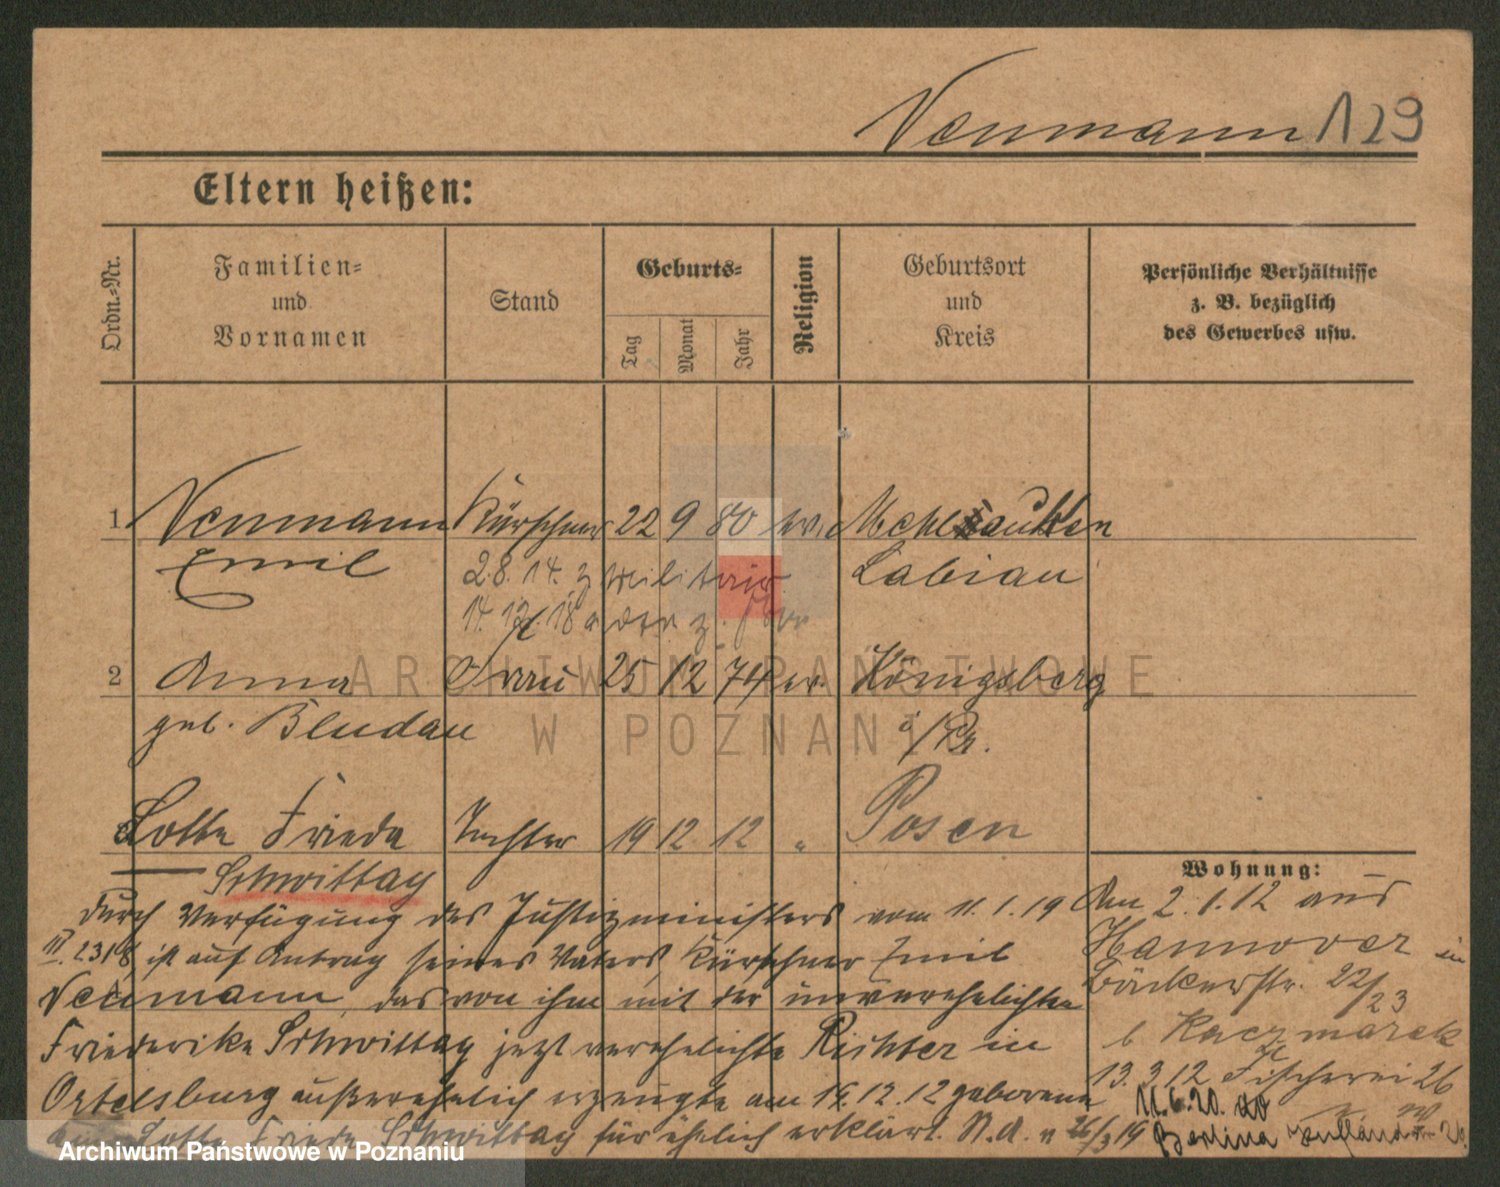 Neumann 129
Eltern heißen:
Ordn.-Nr.
Familien-
und
Vornamen
Stand
Geburts-
Tag
Monat
Jahr
Religion
Geburtsort
und
Kreis
Persönliche Verhältnisse
z. B. bezüglich
des Gewerbes usw.
1 Neumann Kürschner 22 9 80 ev. Mehlauken
Emil 2.8.14. z Militair Labiau
14.12.18 a dem z.
2 Anna Frau 25 12 74 ev. Königsberg
geb. Bludau i/Pr.
Lotte Frieda Tochter 19 12 12 " Posen
Schwittay
durch Verfügung des Justizministers vom 11.1.19
III. 2318 ist auf Antrag seines Vaters, Kürschner Emil
Neumann, das von ihm mit der unverehelichten
Friederike Schwittay jetzt verehelichte Richter in
Ortelsburg außerehelich erzeugte am 19.12.12 geborene
Lotte Frieda Schwittay für ehelich erklärt. St.A. v 26/3 19
Wohnung:
Am 2.1.12 aus
Hannover in
Bäckerstr. 22/23
b Kaczmarek
13.3.12 Fischerei 26
11.6.20. ab
Berlin
ARCHIWUM PAŃSTWOWE
W POZNANIU
Archiwum Państwowe w Poznaniu